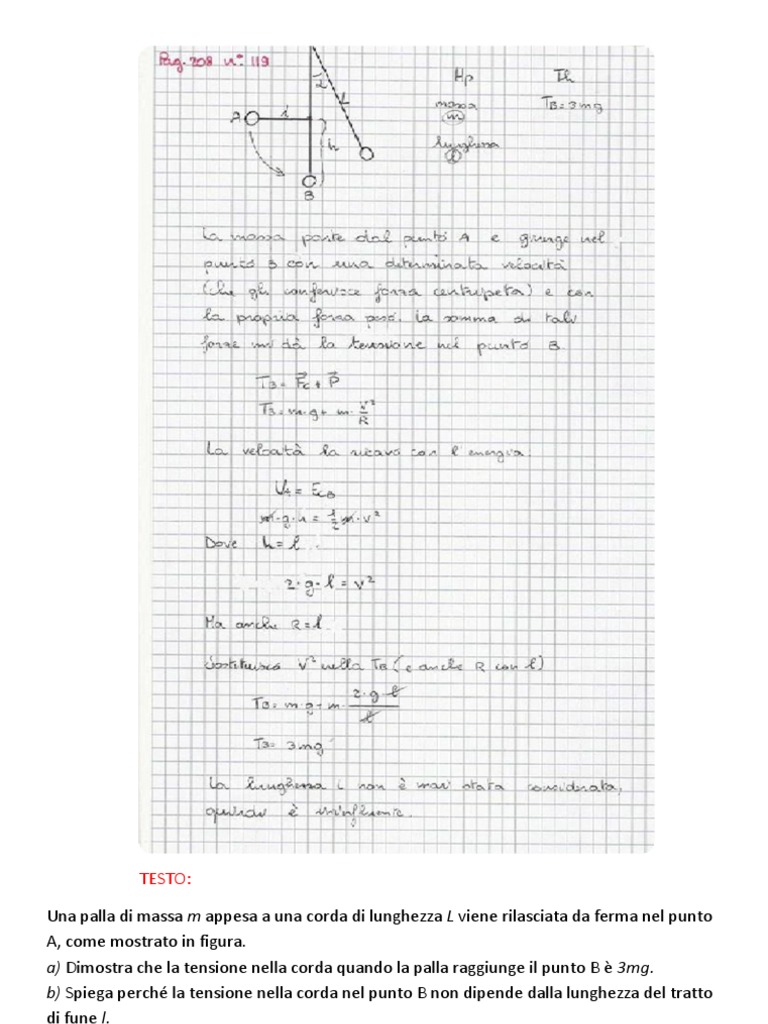 Pag. 208 n° 119
Hp Th
massa TB = 3mg
m
lunghezza
l
α
L
A l
h
B
La massa parte dal punto A e giunge nel
punto B con una determinata velocità
(che gli conferisce forza centripeta) e con
la propria forza peso. La somma di tali
forze mi dà la tensione nel punto B.
TB = Fc + P
TB = m·g + m·v²/R
La velocità la ricavo con l'energia.
UA = EcB
m·g·h = 1/2 m·v²
Dove h = l
2·g·l = v²
Ma anche R = l
Sostituisco v² nella TB (e anche R con l)
TB = m·g + m· 2·g·l / l
TB = 3mg
La lunghezza l non è mai stata considerata,
quindi è ininfluente.
TESTO:
Una palla di massa m appesa a una corda di lunghezza L viene rilasciata da ferma nel punto
A, come mostrato in figura.
a) Dimostra che la tensione nella corda quando la palla raggiunge il punto B è 3mg.
b) Spiega perché la tensione nella corda nel punto B non dipende dalla lunghezza del tratto
di fune l.